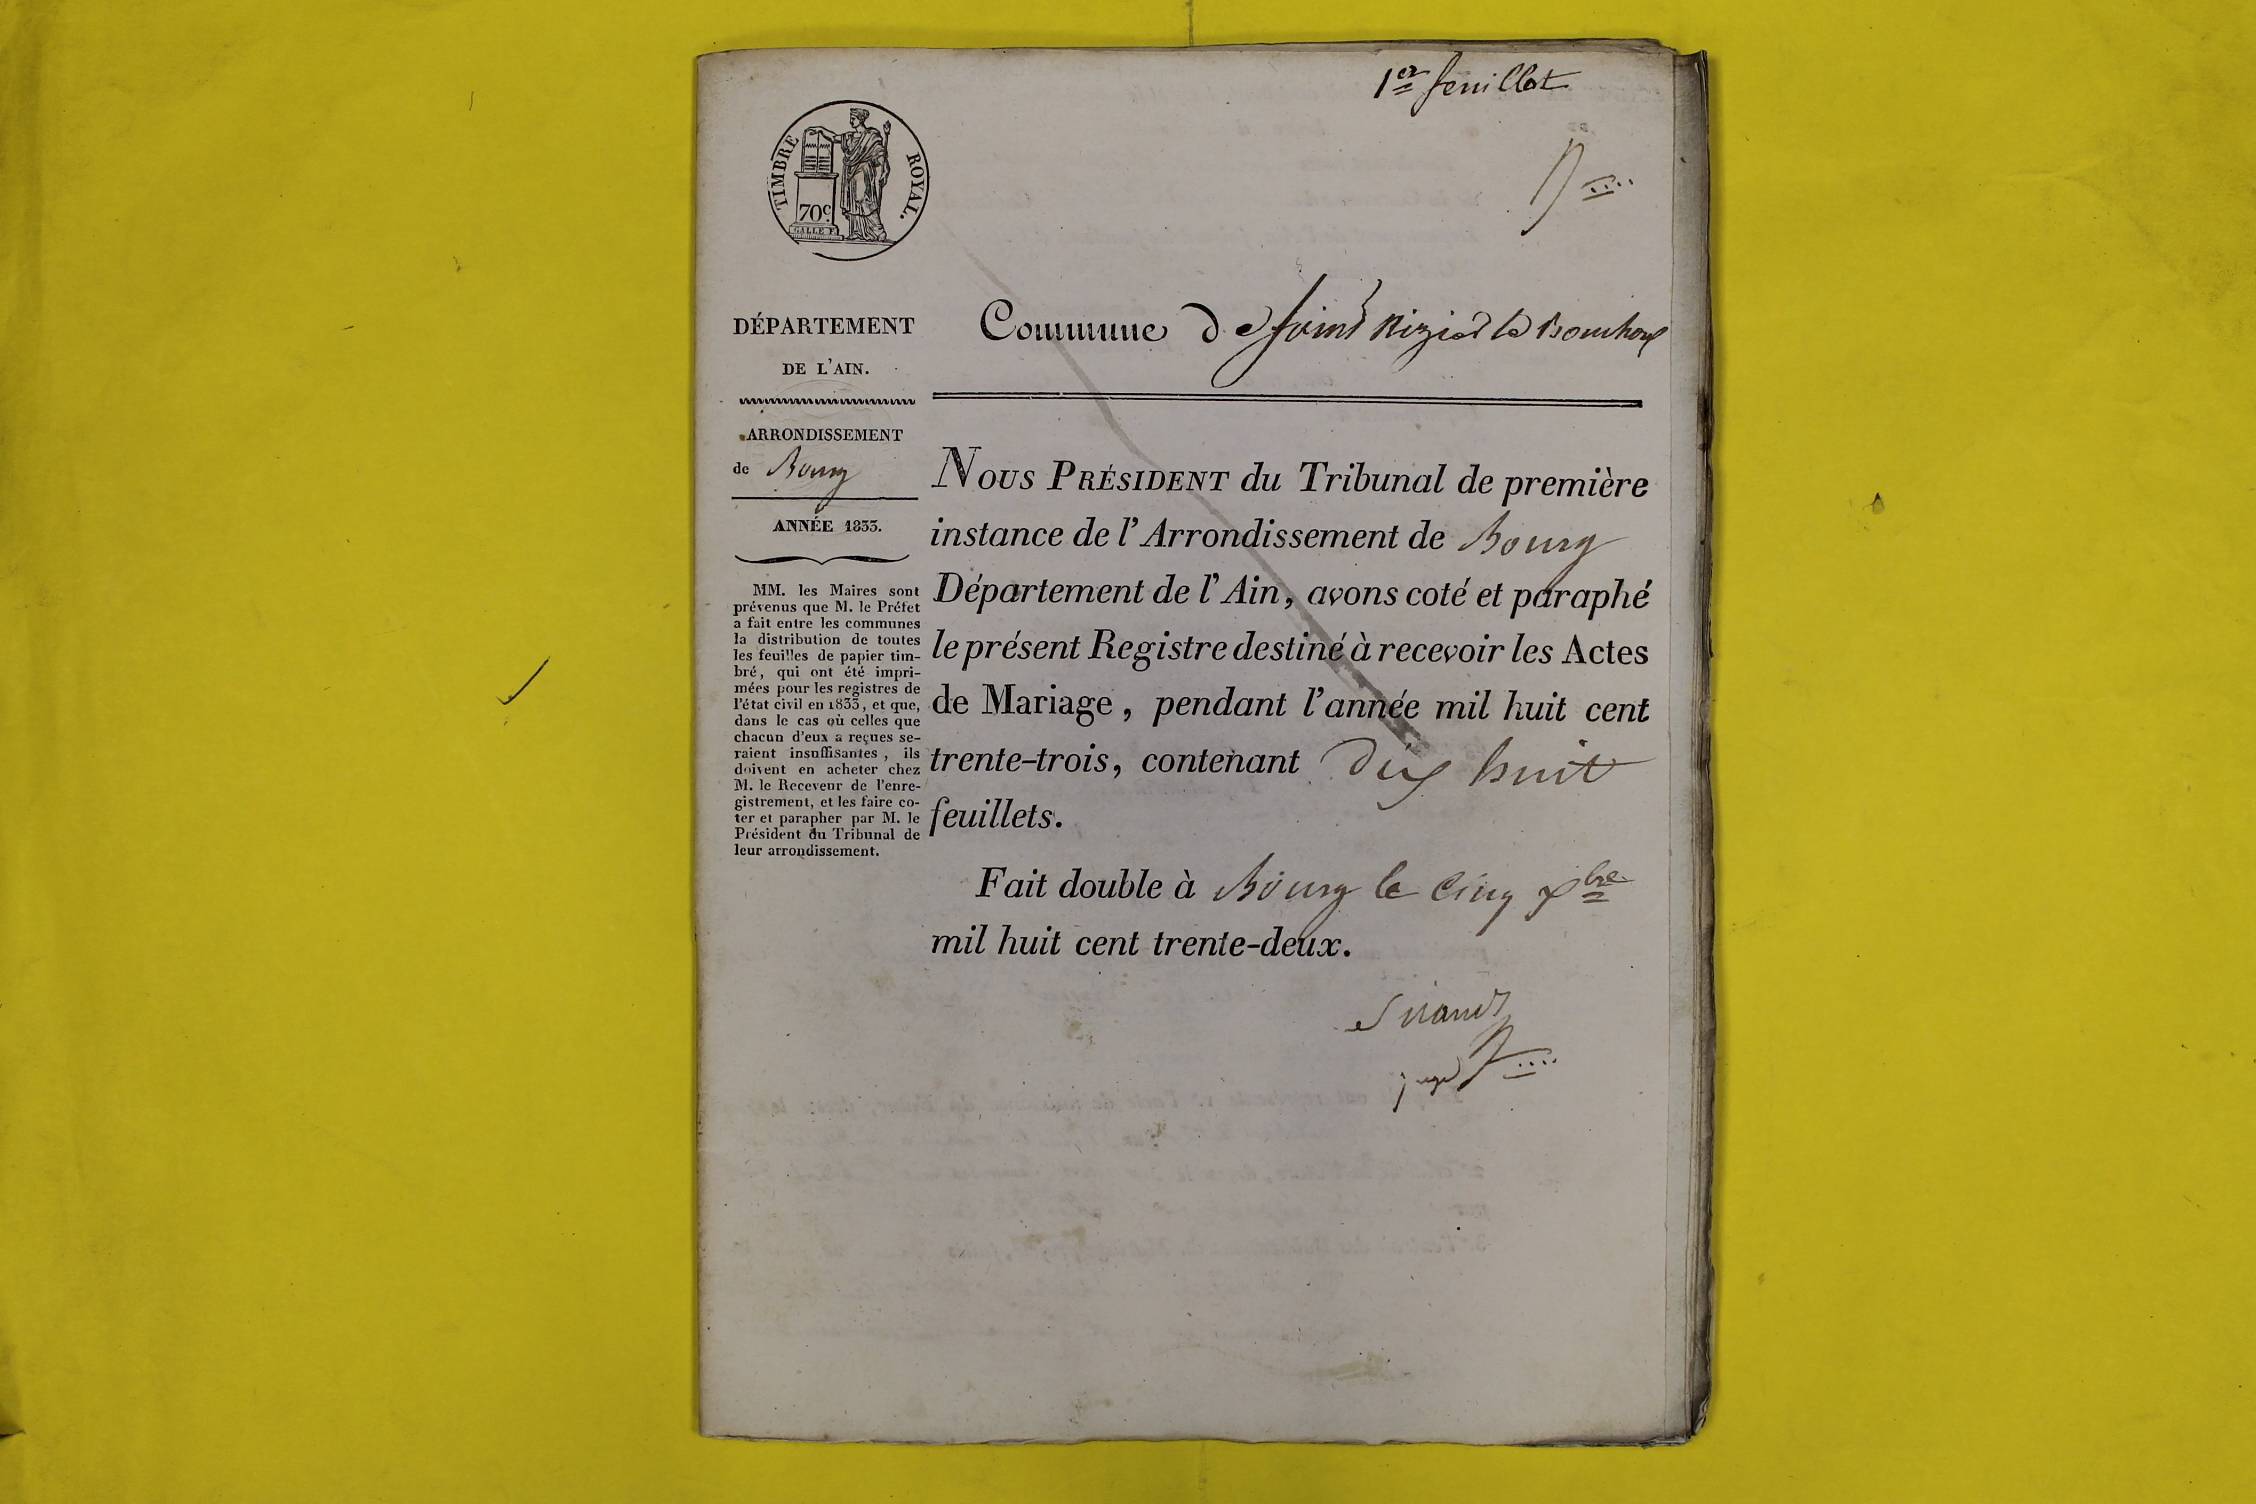 1er feuillet
TIMBRE ROYAL.
70c.
GALLE F.
DÉPARTEMENT
DE L'AIN.
ARRONDISSEMENT
de Bourg
ANNÉE 1833.
MM. les Maires sont
prévenus que M. le Préfet
a fait entre les communes
la distribution de toutes
les feuilles de papier tim-
bré, qui ont été impri-
mées pour les registres de
l'état civil en 1833, et que,
dans le cas où celles que
chacun d'eux a reçues se-
raient insuffisantes, ils
doivent en acheter chez
M. le Receveur de l'enre-
gistrement, et les faire co-
ter et parapher par M. le
Président du Tribunal de
leur arrondissement.
Commune de Saint Nizier le Bouchoux
NOUS PRÉSIDENT du Tribunal de première
instance de l'Arrondissement de Bourg
Département de l'Ain, avons coté et paraphé
le présent Registre destiné à recevoir les Actes
de Mariage, pendant l'année mil huit cent
trente-trois, contenant dix huit
feuillets.
Fait double à Bourg le cinq xbre
mil huit cent trente-deux.
Sirand
juge